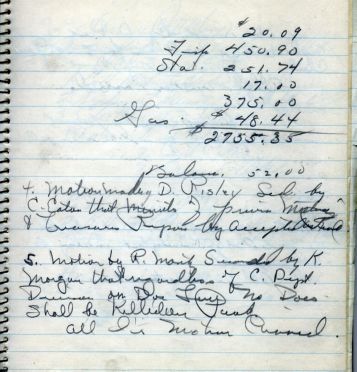 $20.09
450.90
Sta. 251.74
17.00
375.00
Gas. $48.44
$2755.35
Balance. 52.00
4. Motion made by D. Risley Sec. by
C. Eaton that Minutes of previous Meeting
& Treasurers Report by Accepted
5. Motion by R. Seconded by K.
Morgan that regardless of C.
on Doe No Does
Shall be Killed in Park
all In Carried.